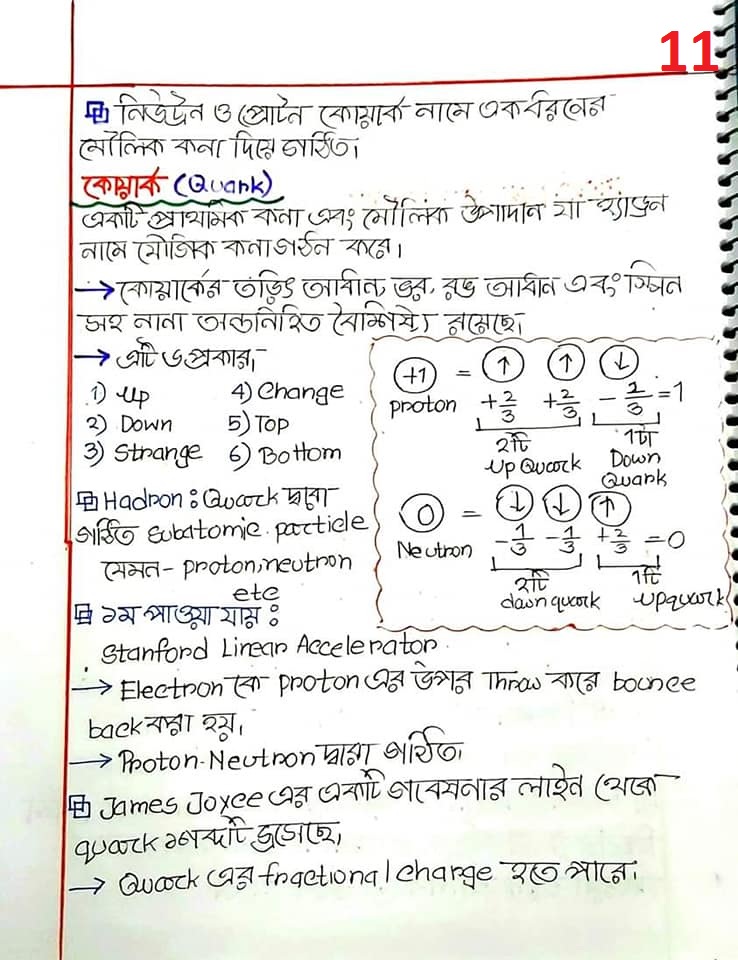 11
নিউট্রন ও প্রোটন কোয়ার্ক নামে একধরনের
মৌলিক কনা দিয়ে গঠিত।
কোয়ার্ক (Quark)
একটি প্রাথমিক কনা এবং মৌলিক উপাদান যা হ্যাড্রন
নামে যৌগিক কনা গঠন করে।
→ কোয়ার্কের তড়িৎ আধান, ভর, রঙ আধান এবং স্পিন
সহ নানা অন্তর্নিহিত বৈশিষ্ট্য রয়েছে।
→ এটি ৬ প্রকার।
1) Up 4) Change
2) Down 5) Top
3) Strange 6) Bottom
(+1) = ↑ ↑ ↓
proton +2/3 +2/3 - 2/3 = 1
২টি Up Quark ১টা Down Quark
0 = ↓ ↓ ↑
Neutron -1/3 -1/3 +2/3 = 0
২টি down quark ১টি up quark
Hadron : Quark দ্বারা
গঠিত subatomic particle
যেমন- proton, neutron
etc
১ম পাওয়া যায় :
Stanford Linear Accelerator
→ Electron কে proton এর উপর Throw করে bounce
back করা হয়।
→ Proton-Neutron দ্বারা গঠিত।
James Joyce এর একটি গবেষনার লাইন থেকে
quark শব্দটি
→ Quark এর fractional charge হতে পারে।